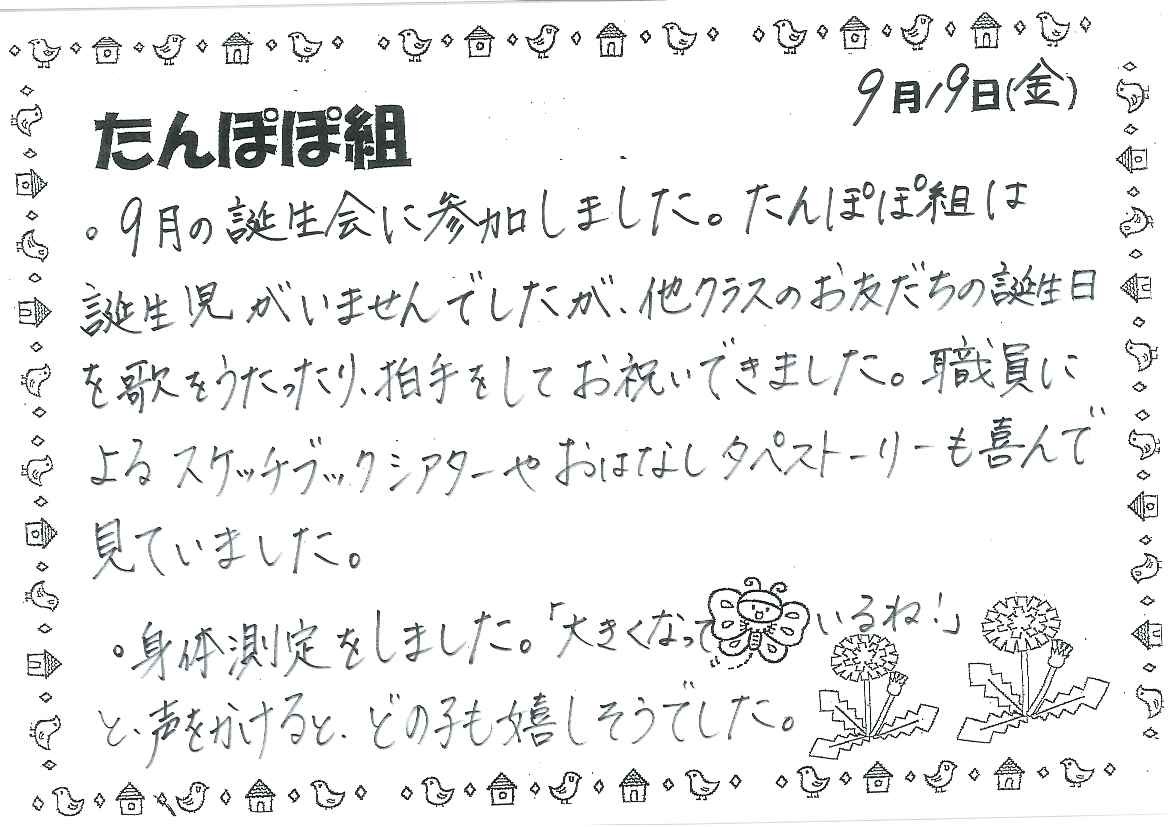 9月19日(金)
たんぽぽ組
。9月の誕生会に参加しました。たんぽぽ組は
誕生児がいませんでしたが、他クラスのお友だちの誕生日
を歌をうたったり、拍手をしてお祝いできました。職員に
よるスケッチブックシアターやおはなしタペストーリーも喜んで
見ていました。
。身体測定をしました。「大きくなっているね!」
と、声をかけると、どの子も嬉しそうでした。